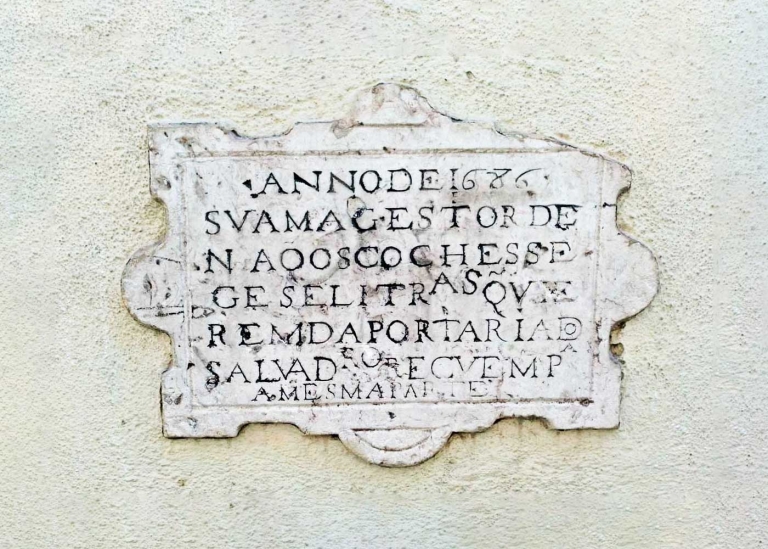 ANNO DE 1686
SVA MAGEST ORDE
NA Q OS COCHES SE
GES E LITRAS Q̃ VIE
REM DA PORTARIA DO
SALVADOR RECVEM PA
A MESMA PARTE